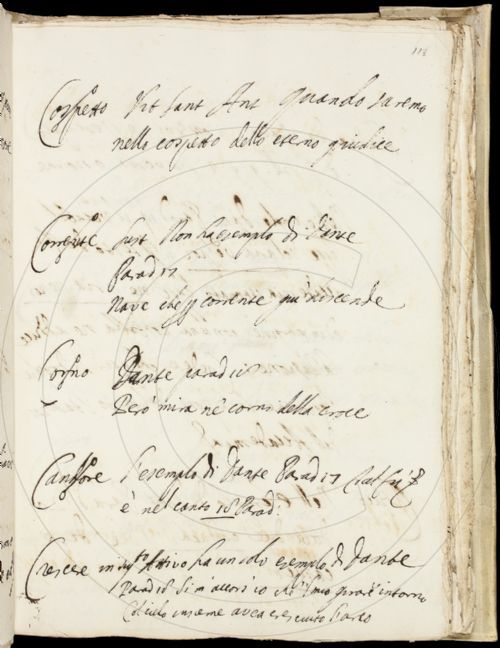 113
Cospetto Vit Sant Ant Quando saremo
nello cospetto dello eterno giudice
Corrente sust Non ha esempio di Dante
Parad 17
Nave che p corrente giù discende
Corno Dante parad 18
Però mira ne' corni della croce
Cantore l'esempio di Dante Parad 17
è nel canto 18 Parad:
Crescere in Attivo ha un solo esempio di Dante
Parad 18 Sì m'accors'io ch'l mio girare intorno
Col cielo insieme avea cresciuto l'arco